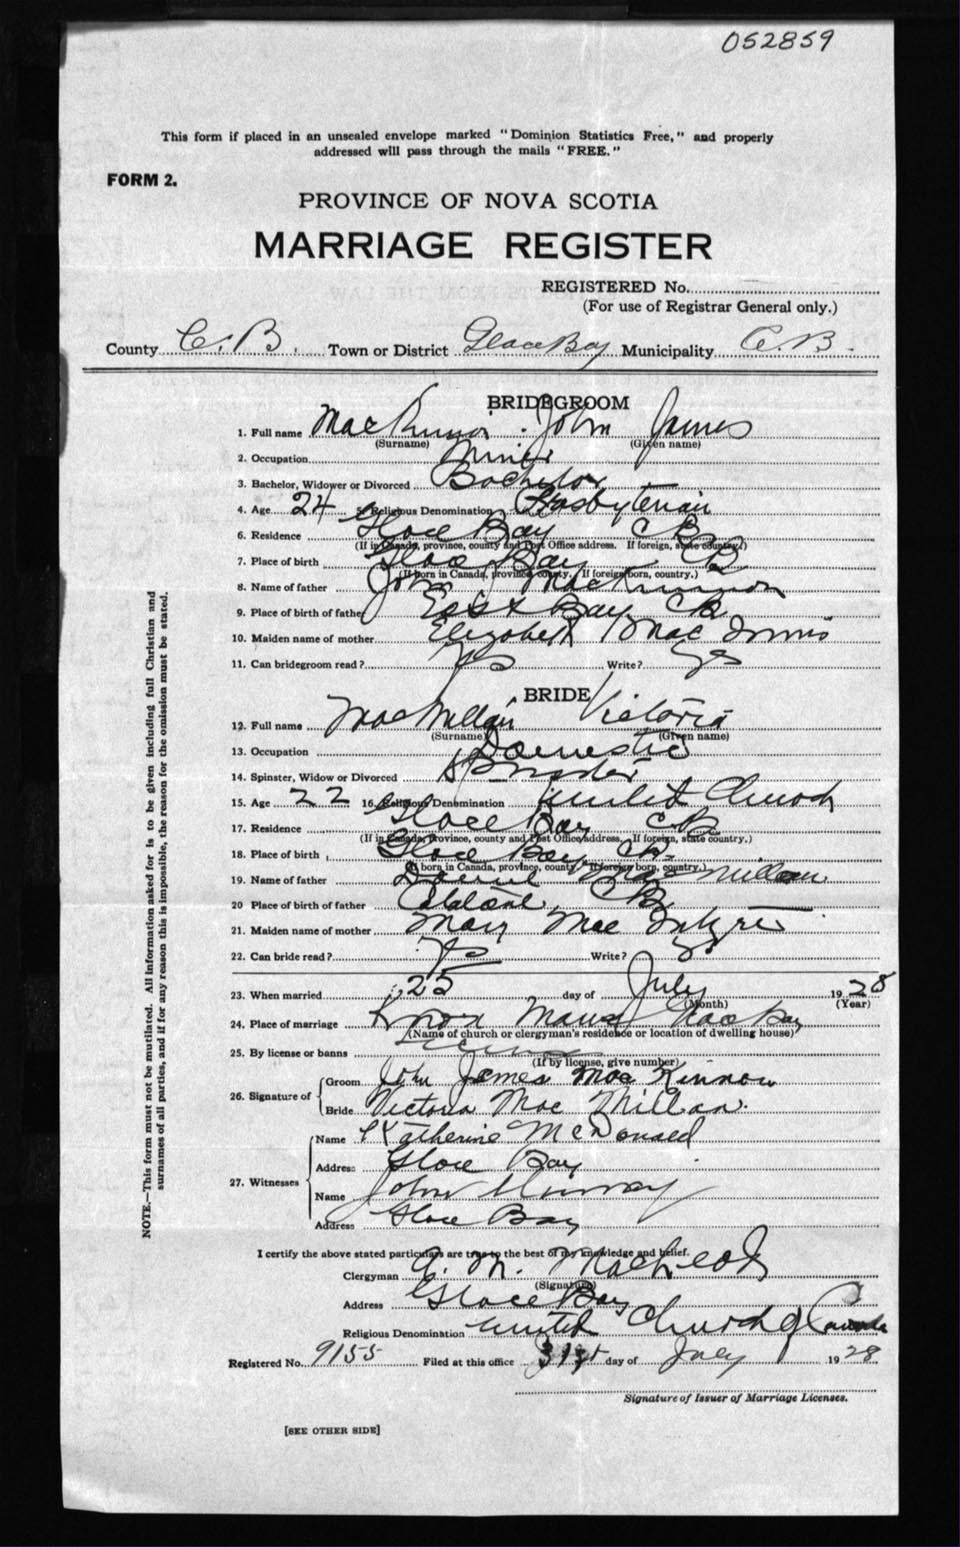 052859
This form if placed in an unsealed envelope marked "Dominion Statistics Free," and properly
addressed will pass through the mails "FREE."
FORM 2.
PROVINCE OF NOVA SCOTIA
MARRIAGE REGISTER
REGISTERED No.
(For use of Registrar General only.)
County C. B. Town or District Glace Bay Municipality C. B.
BRIDEGROOM
1. Full name MacKinnon John James
(Surname) (Given name)
2. Occupation Miner
3. Bachelor, Widower or Divorced Bachelor
4. Age 24 5. Religious Denomination Presbyterian
6. Residence Glace Bay C B
(If in Canada, province, county and Post Office address. If foreign, state country.)
7. Place of birth Glace Bay C B
(If born in Canada, province, county. If foreign born, country.)
8. Name of father John MacKinnon
9. Place of birth of father East Bay C B
10. Maiden name of mother Elizabeth MacInnis
11. Can bridegroom read? Yes Write? Yes
BRIDE
12. Full name MacMillan Victoria
(Surname) (Given name)
13. Occupation Domestic
14. Spinster, Widow or Divorced Spinster
15. Age 22 16. Religious Denomination United Church
17. Residence Glace Bay C B
(If in Canada, province, county and Post Office address. If foreign, state country.)
18. Place of birth Glace Bay C B
(If born in Canada, province, county. If foreign born, country.)
19. Name of father Daniel MacMillan
20 Place of birth of father Catalone C B
21. Maiden name of mother Mary MacIntyre
22. Can bride read? Yes Write? Yes
23. When married 25 day of July 1928
(Month) (Year)
24. Place of marriage Knox Manse Glace Bay
(Name of church or clergyman's residence or location of dwelling house)
25. By license or banns
(If by license, give number)
26. Signature of Groom John James Mac Kinnon
Bride Victoria Mac Millan.
27. Witnesses Name Katherine McDonald
Address Glace Bay
Name John Murray
Address Glace Bay
I certify the above stated particulars are true to the best of my knowledge and belief.
Clergyman A. M. MacLeod
(Signature)
Address Glace Bay
Religious Denomination United Church of Canada
Registered No. 9155 Filed at this office 31st day of July 1928
Signature of Issuer of Marriage Licenses.
[SEE OTHER SIDE]
NOTE.—This form must not be mutilated. All information asked for is to be given including full Christian and
surnames of all parties, and if for any reason this is impossible, the reason for the omission must be stated.